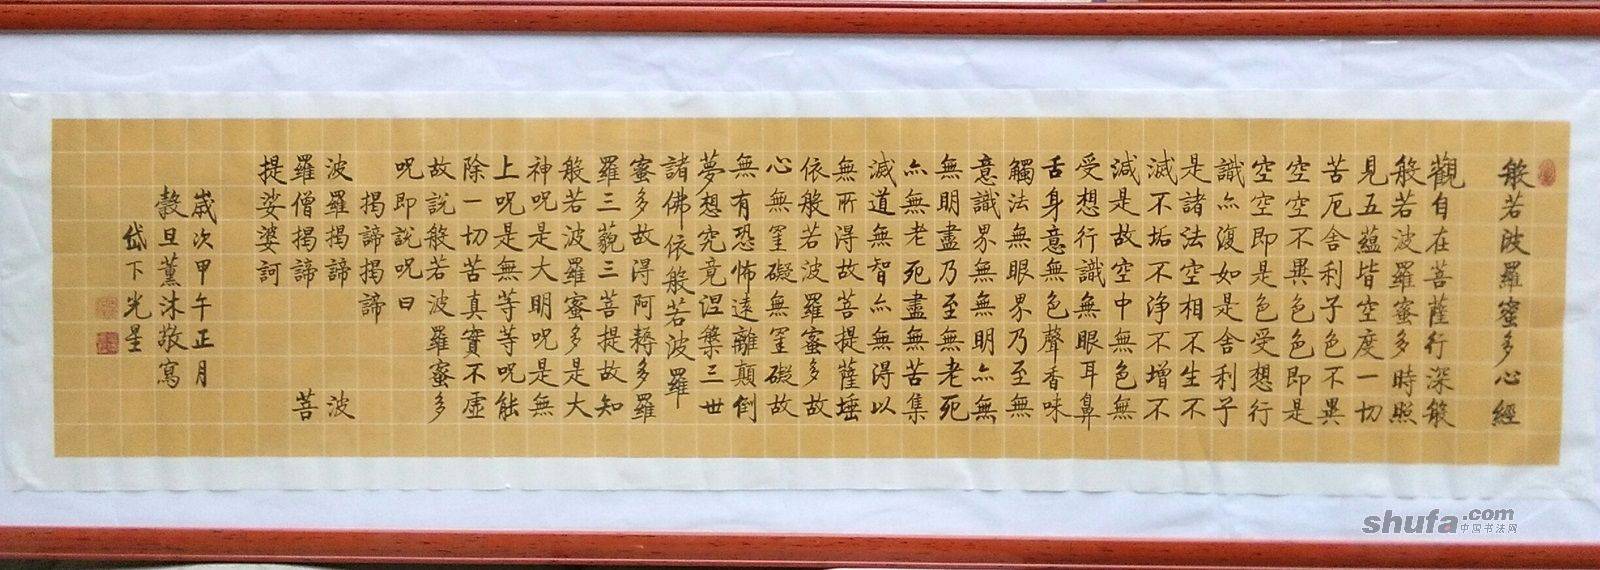 般若波羅蜜多心經
觀自在菩薩行深般
般若波羅蜜多時照
見五蘊皆空度一切
苦厄舍利子色不異
空空不異色色即是
空空即是色受想行
識亦復如是舍利子
是諸法空相不生不
滅不垢不淨不增不
減是故空中無色無
受想行識無眼耳鼻
舌身意無色聲香味
觸法無眼界乃至無
意識界無無明亦無
無明盡乃至無老死
亦無老死盡無苦集
滅道無智亦無得以
無所得故菩提薩埵
依般若波羅蜜多故
心無罣礙無罣礙故
無有恐怖遠離顛倒
夢想究竟涅槃三世
諸佛依般若波羅
蜜多故得阿耨多羅
羅三藐三菩提故知
般若波羅蜜多是大
神呪是大明呪是無
上呪是無等等呪能
除一切苦真實不虛
故說般若波羅蜜多
呪即說呪曰
揭諦揭諦
波羅揭諦 波
羅僧揭諦 菩
提娑婆訶
歲次甲午正月
穀旦薰沐敬寫
岱下光星
shufa.com
中国书法网